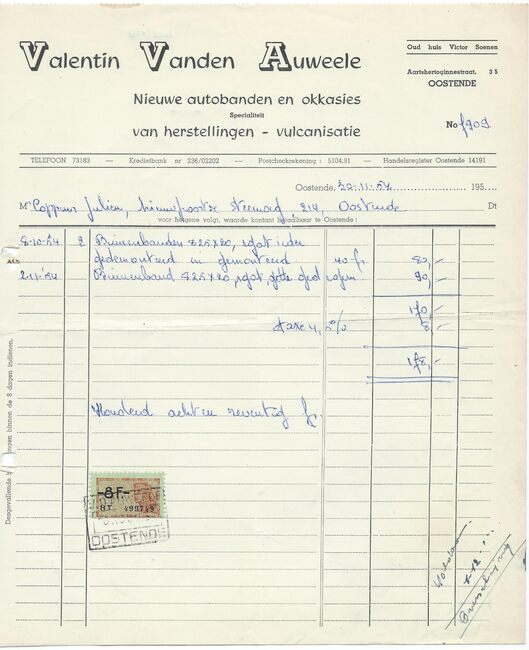 Valentin Vanden Auweele
Oud huis Victor Soenen
Aartshertoginnestraat, 35
OOSTENDE
Nieuwe autobanden en okkasies
Specialiteit
van herstellingen - vulcanisatie
No 1909
TELEFOON 73183 — Kredietbank nr 236/02202 — Postcheckrekening : 5104.91 — Handelsregister Oostende 14191
Oostende, 30-11-54 195
Mr Coppens Julien, Nieuwpoortse Steenweg, 214, Oostende Dt
voor hetgene volgt, waarde kontant betaalbaar te Oostende :
8-10-54 2 Binnenbanden 825x20,
gedemonteerd en gemonteerd 40 fr. 80,-
2-11-54 Binnenband 825x20, 90,-
170,-
taxe 4, % 8,-
178,-
Honderd acht en zeventig fr.
binnen de 8 dagen indienen.
-8F-
8T 499749
OOSTENDE
Voldaan